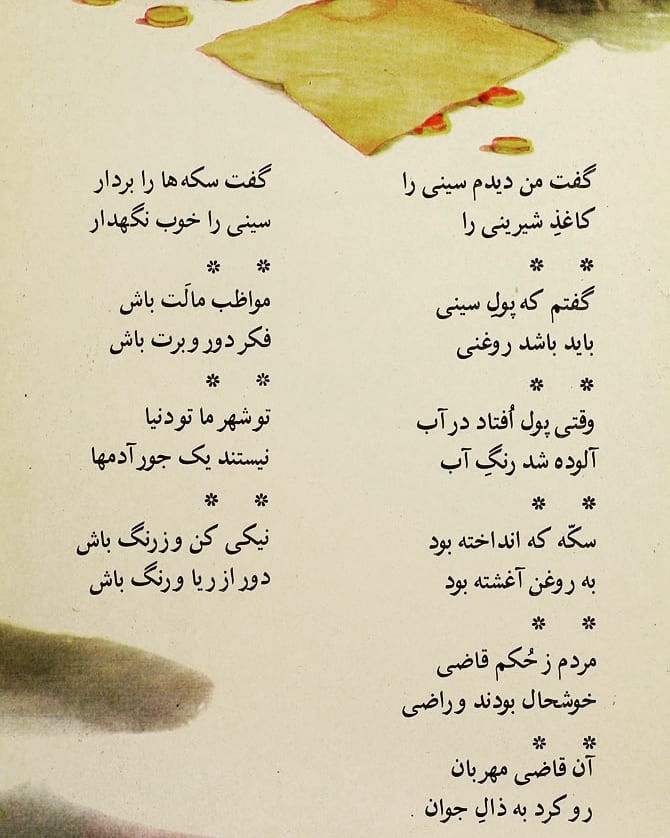 گفت من دیدم سینی را
کاغذِ شیرینی را
✻ ✻
گفتم که پولِ سینی
باید باشد روغنی
✻ ✻
وقتی پول اُفتاد در آب
آلوده شد رنگِ آب
✻ ✻
سکّه که انداخته بود
به روغن آغشته بود
✻ ✻
مردم ز حُکم قاضی
خوشحال بودند و راضی
✻ ✻
آن قاضی مهربان
رو کرد به ذالِ جوان
گفت سکه‌ها را بردار
سینی را خوب نگهدار
✻ ✻
مواظب مالَت باش
فکر دور و برت باش
✻ ✻
تو شهر ما تو دنیا
نیستند یک جور آدمها
✻ ✻
نیکی کن و زرنگ باش
دور از ریا و رنگ باش